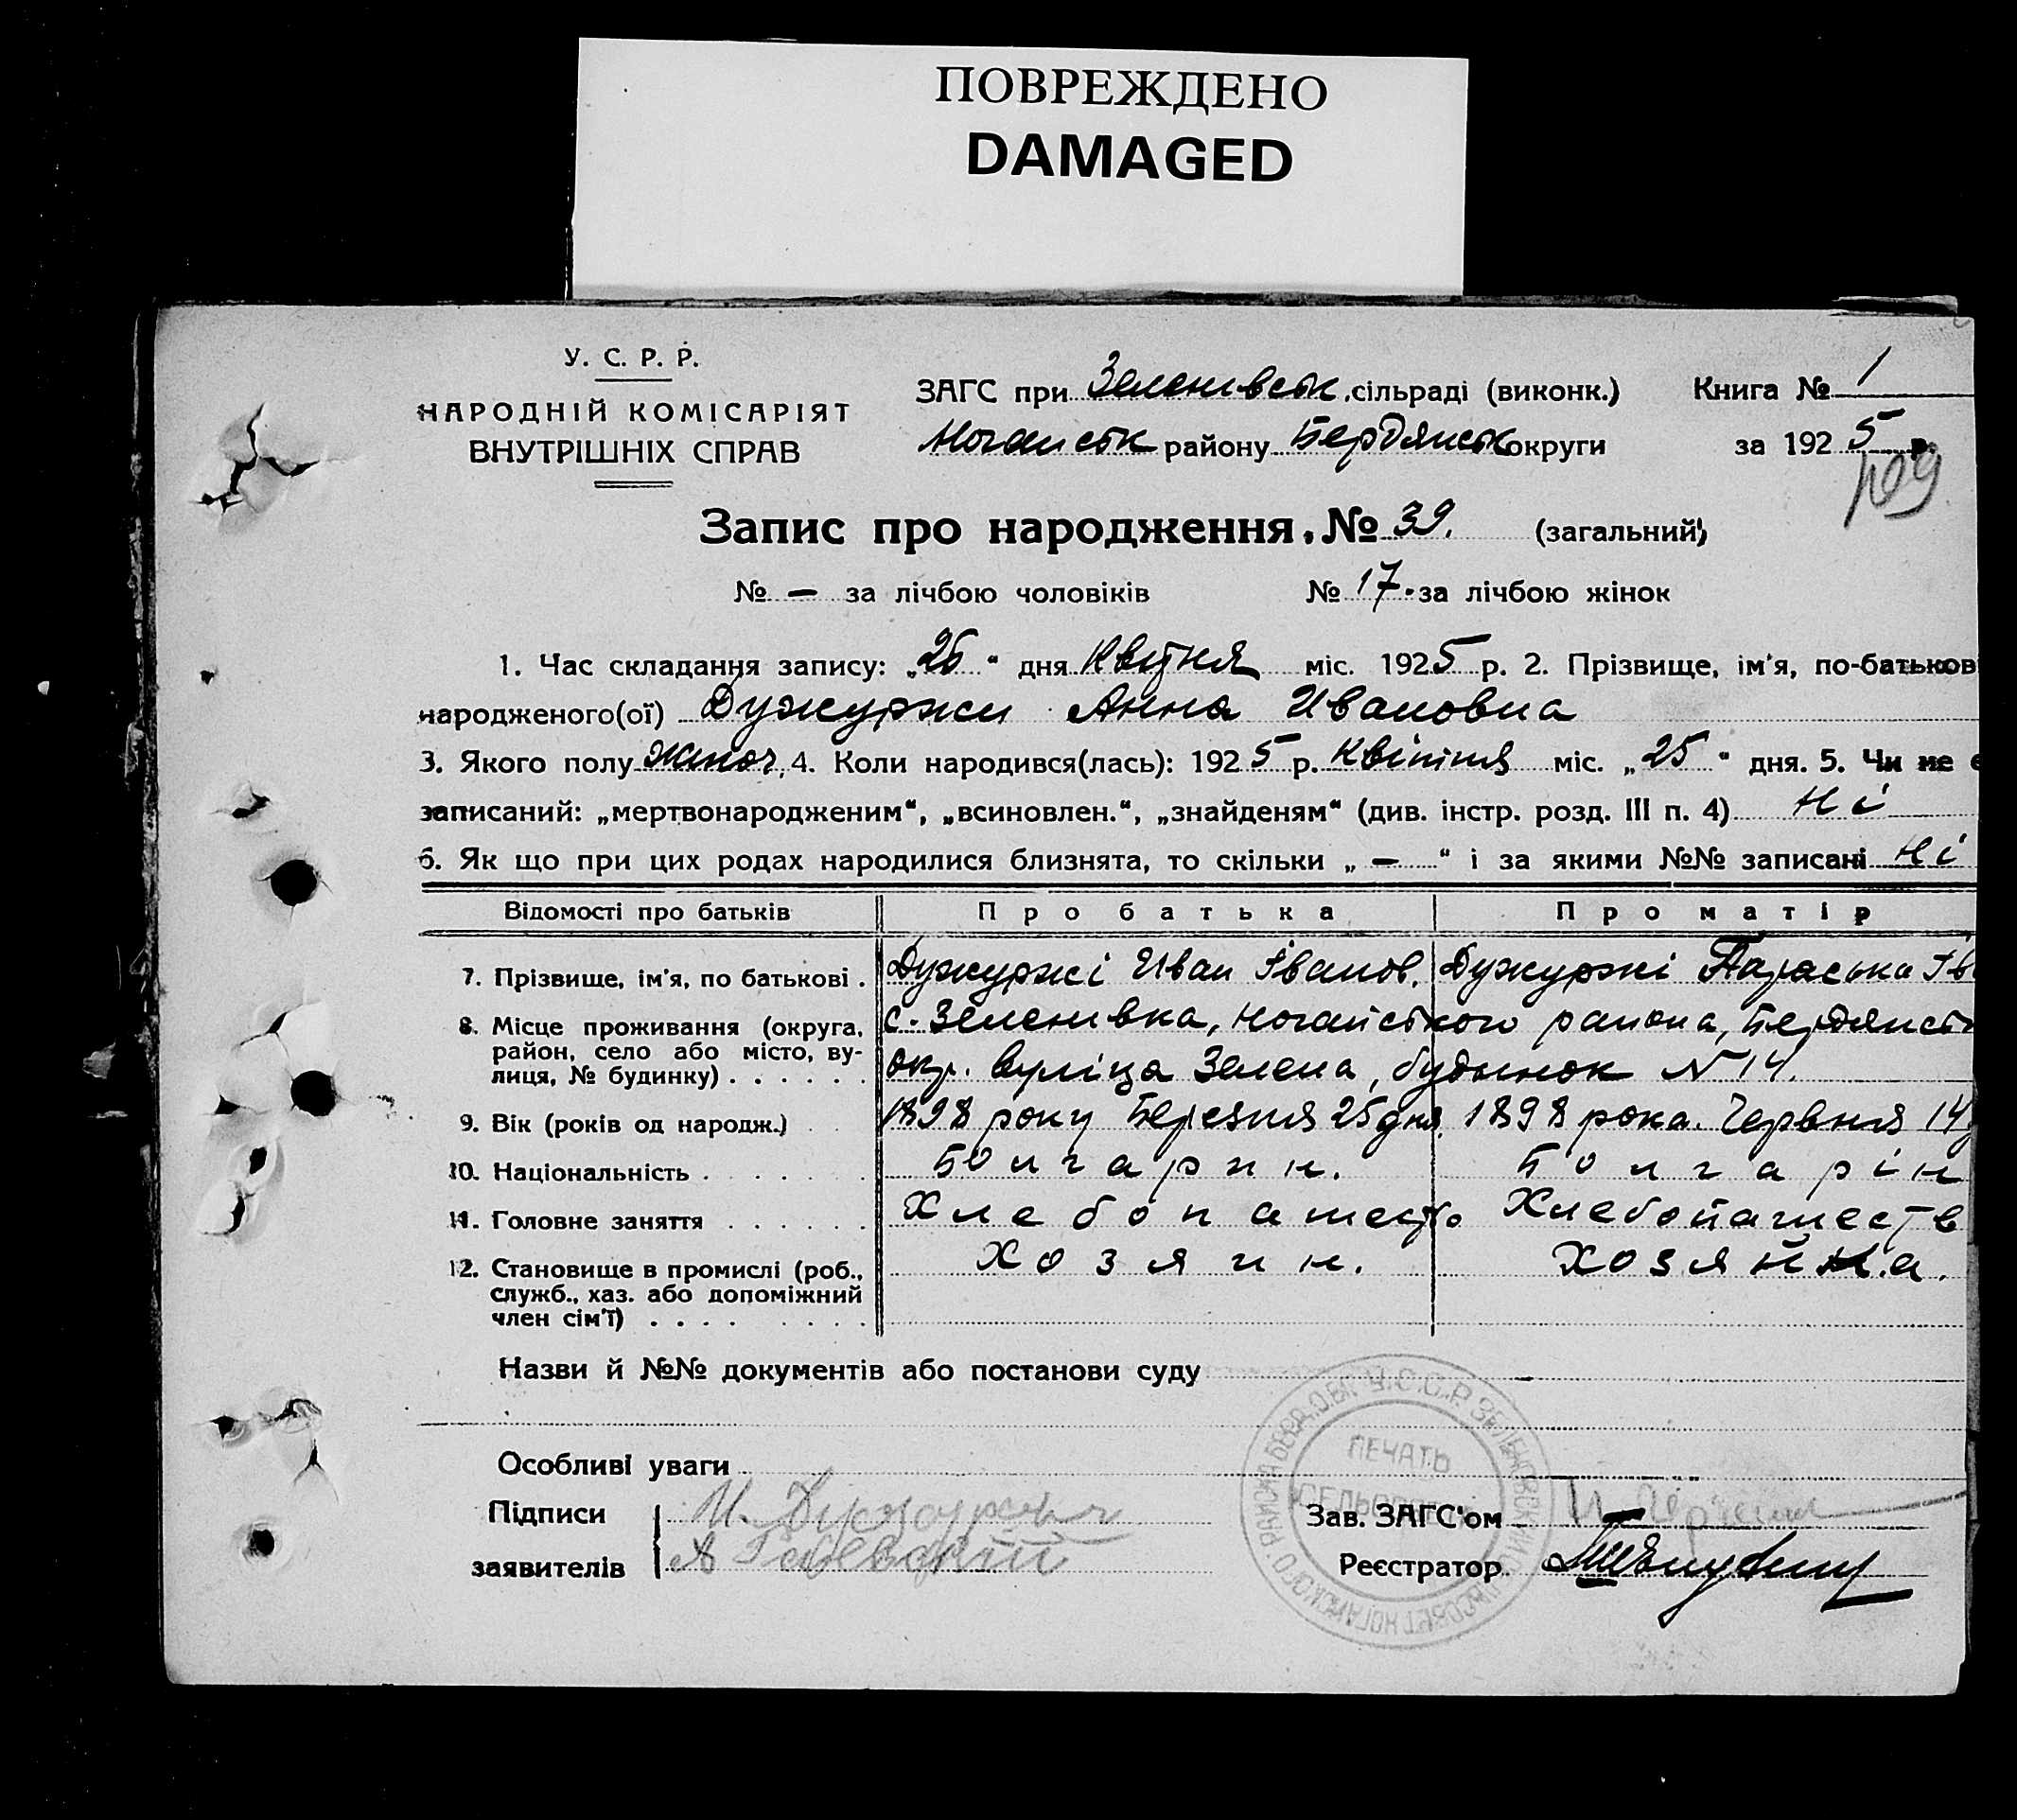 ПОВРЕЖДЕНО
DAMAGED
У. С. Р. Р.
НАРОДНІЙ КОМІСАРІЯТ
ВНУТРІШНІХ СПРАВ
ЗАГС при Зеленивськ. сільраді (виконк.) Книга № 1
Ногайськ району Бердянськ округи за 1925 р.
109
Запис про народження. № 39. (загальний)
№ — за лічбою чоловіків № 17. за лічбою жінок
1. Час складання запису: „26“ дня Квітня міс. 1925 р. 2. Прізвище, ім'я, по-батькові
народженого(ої) Дужуржи Анна Ивановна
3. Якого полу жіноч, 4. Коли народився(лась): 1925 р. Квітня міс. „25“ дня. 5. Чи не є
записаний: „мертвонародженим“, „всиновлен.“, „знайденям“ (див. інстр. розд. III п. 4) Ні
6. Як що при цих родах народилися близнята, то скільки „—“ і за якими №№ записані Ні
Відомості про батьків Про батька Про матір
7. Прізвище, ім'я, по батькові . Дужуржі Иван Іванов. Дужуржі Параська Ів
8. Місце проживання (округа, район, село або місто, вулиця, № будинку) . . . . . . с. Зеленивка, Ногайського района, Бердянсько
окр. вуліца Зелена, будынок № 14.
9. Вік (років од народж.) . . 1898 року Березня 25 дня. 1898 рока. Червня 14
10. Національність . . . . . . . Болгарин. Болгарін
11. Головне заняття . . . . . . Хлебопашество Хлебопашеств
12. Становище в промислі (роб., Хозяин. Хозяйка.
служб., хаз. або допоміжний
член сім'ї) . . . . . . . .
Назви й №№ документів або постанови суду
Особливі уваги
Підписи И. Дужуржи Зав. ЗАГС'ом
заявителів Реєстратор
ПЕЧАТЬ
СЕЛЬСОВЕТА